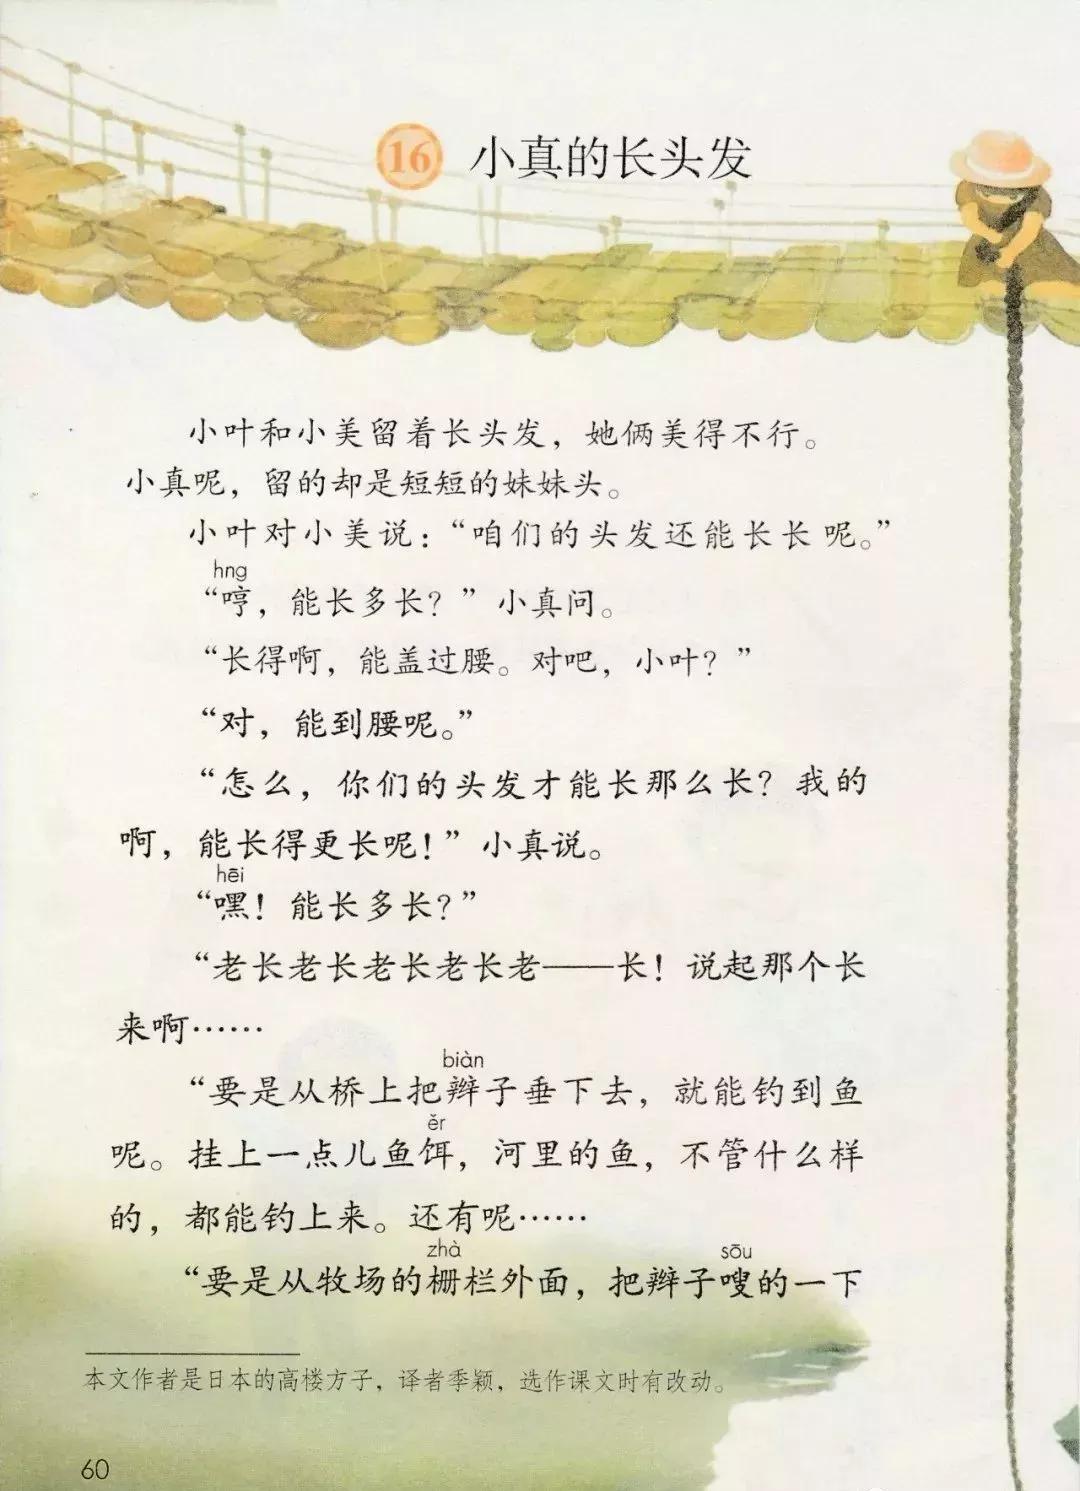 16 小真的长头发
小叶和小美留着长头发，她俩美得不行。
小真呢，留的却是短短的妹妹头。
小叶对小美说：“咱们的头发还能长长呢。”
hng
“哼，能长多长？”小真问。
“长得啊，能盖过腰。对吧，小叶？”
“对，能到腰呢。”
“怎么，你们的头发才能长那么长？我的
啊，能长得更长呢！”小真说。
hēi
“嘿！能长多长？”
“老长老长老长老长老——长！说起那个长
来啊……
biàn
“要是从桥上把辫子垂下去，就能钓到鱼
ěr
呢。挂上一点儿鱼饵，河里的鱼，不管什么样
的，都能钓上来。还有呢……
zhà sōu
“要是从牧场的栅栏外面，把辫子嗖的一下
本文作者是日本的高楼方子，译者季颖，选作课文时有改动。
60